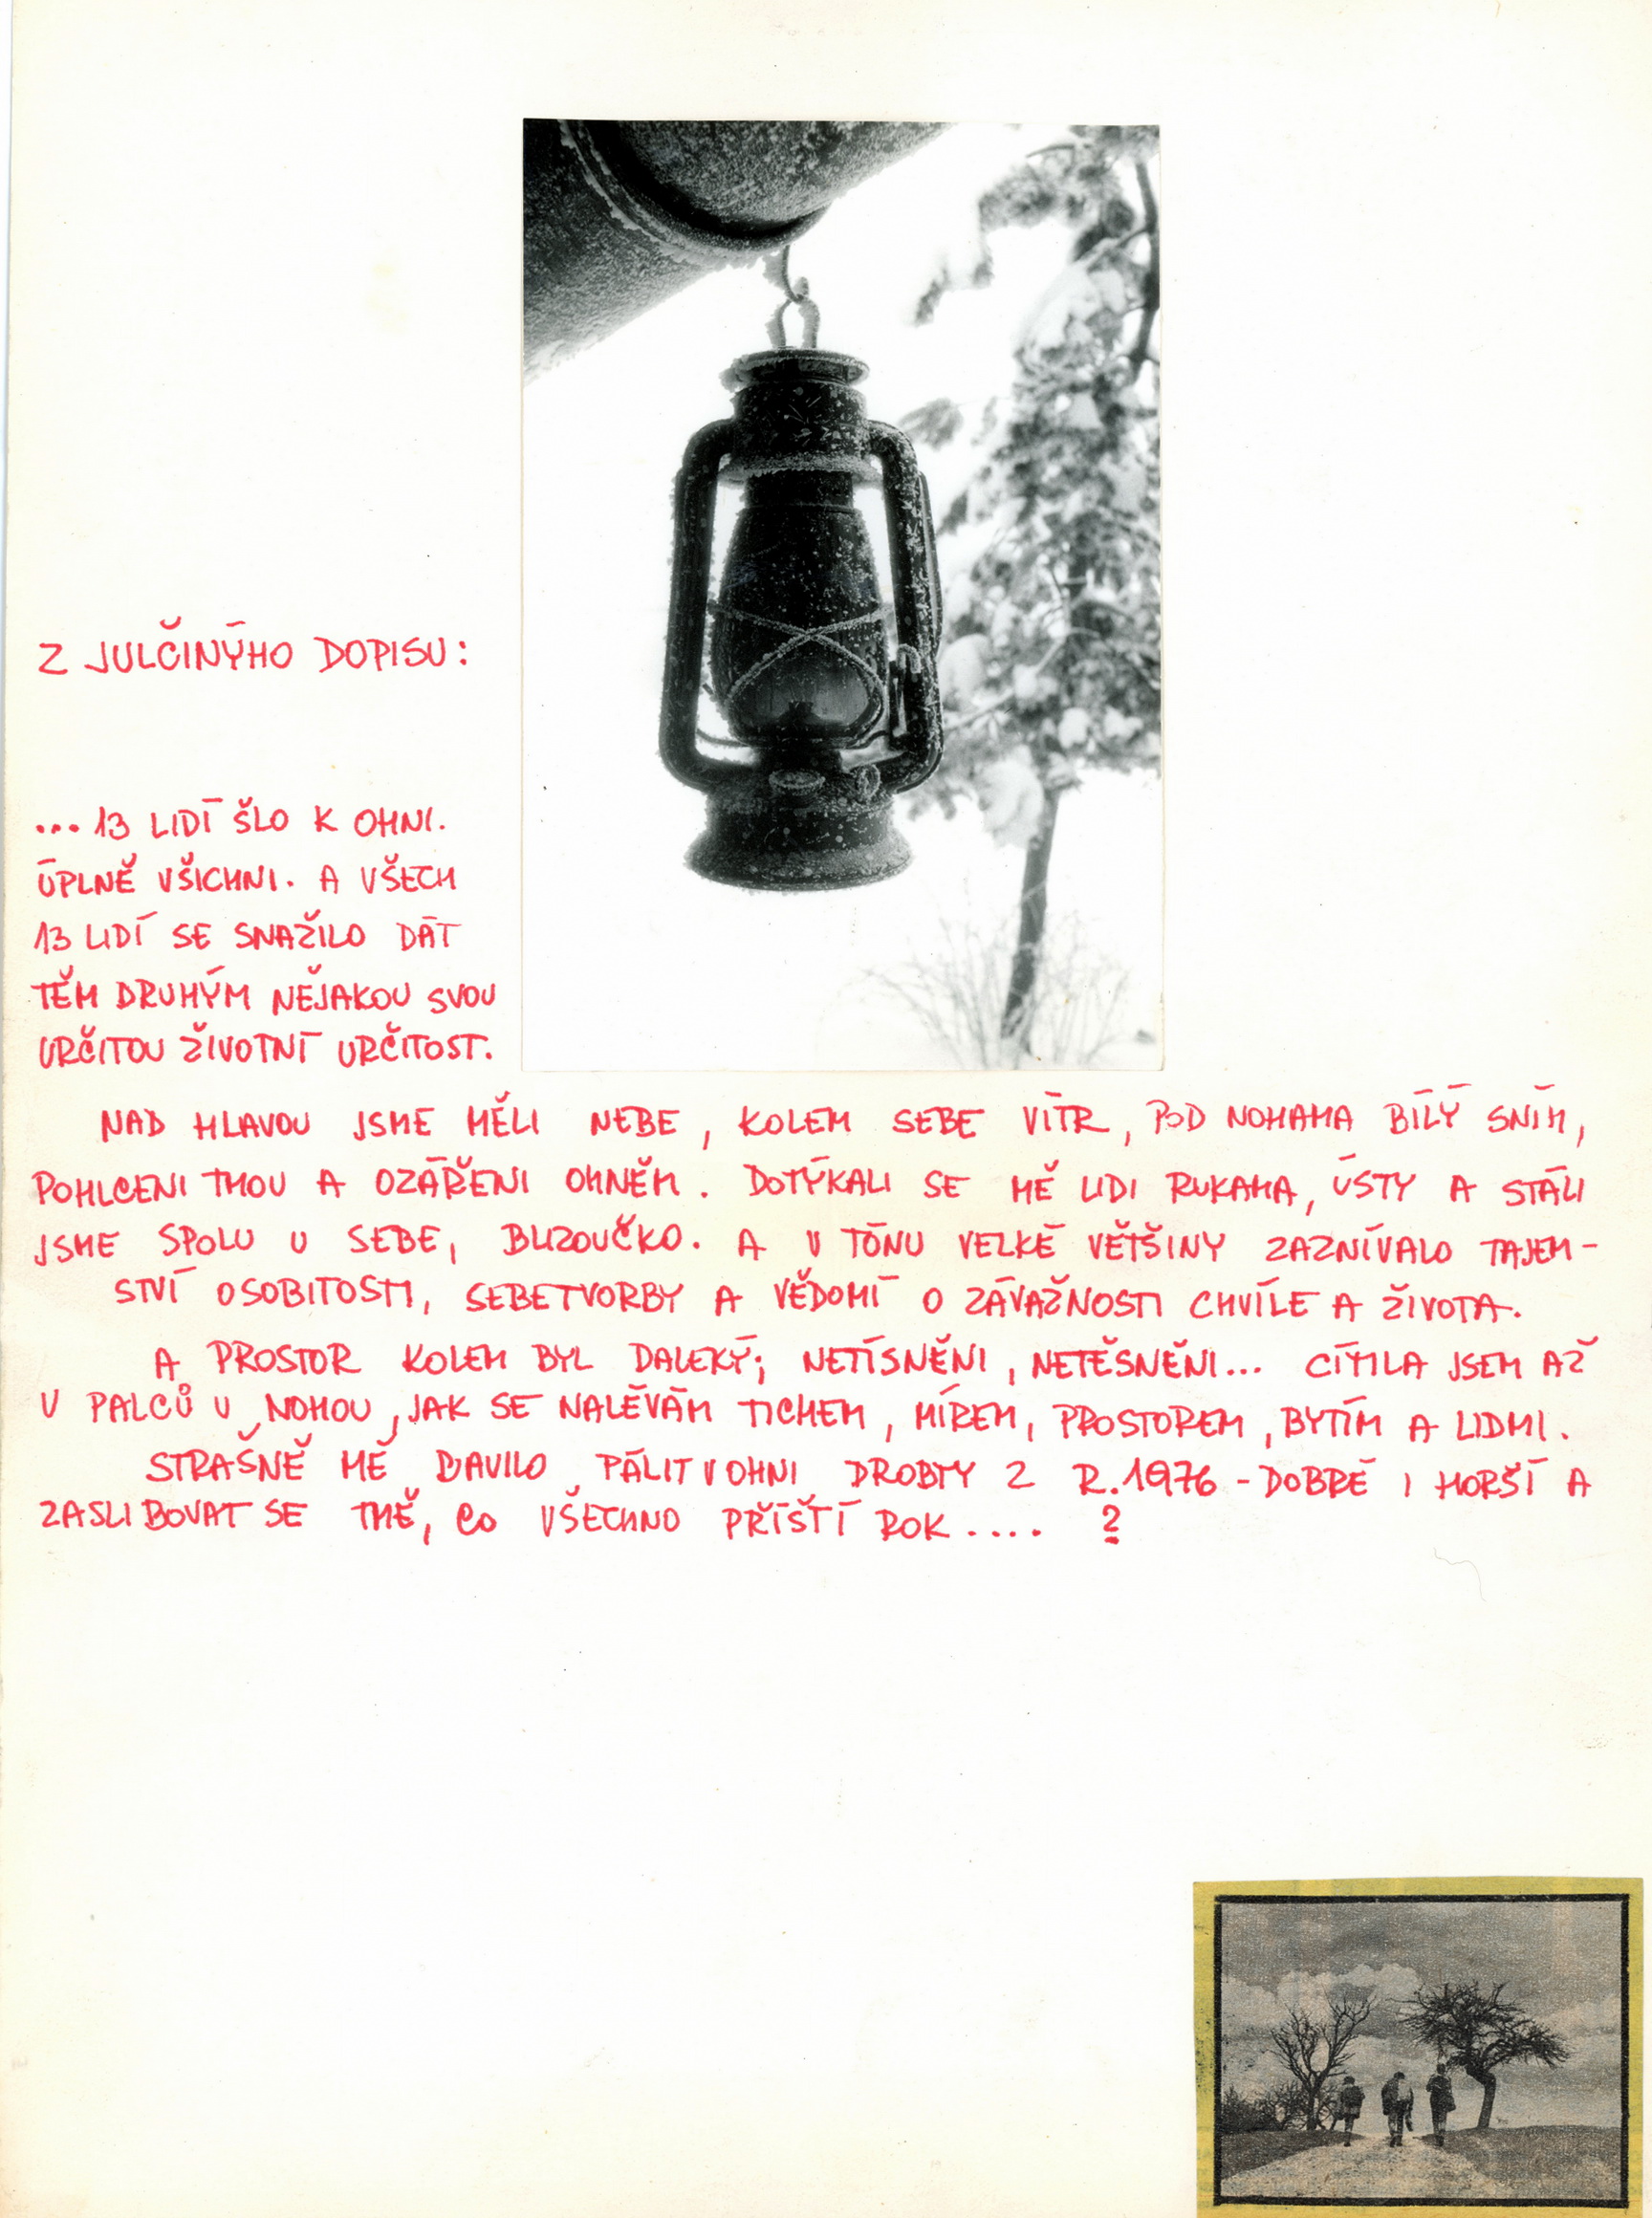 Z JULČINÝHO DOPISU:
... 13 LIDÍ ŠLO K OHNI.
ÚPLNĚ VŠICHNI. A VŠECH
13 LIDÍ SE SNAŽILO DÁT
TĚM DRUHÝM NĚJAKOU SVOU
URČITOU ŽIVOTNÍ URČITOST.
NAD HLAVOU JSME MĚLI NEBE, KOLEM SEBE VÍTR, POD NOHAMA BÍLÝ SNÍH,
POHLCENI TMOU A OZÁŘENI OHNĚM. DOTÝKALI SE MĚ LIDI RUKAMA, ÚSTY A STÁLI
JSME SPOLU U SEBE, BLIZOUČKO. A V TÓNU VELKÉ VĚTŠINY ZAZNÍVALO TAJEM-
STVÍ OSOBITOSTI, SEBETVORBY A VĚDOMÍ O ZÁVAŽNOSTI CHVÍLE A ŽIVOTA.
A PROSTOR KOLEM BYL DALEKÝ; NETÍSNĚNI, NETĚSNĚNI... CÍTILA JSEM AŽ
V PALCŮ U NOHOU, JAK SE NALÉVÁM TICHEM, MÍREM, PROSTOREM, BYTÍM A LIDMI.
STRAŠNĚ MĚ BAVILO PÁLIT V OHNI DROBTY Z R.1976 - DOBRÉ I HORŠÍ A
ZASLIBOVAT SE TMĚ, CO VŠECHNO PŘÍŠTÍ ROK .... ?